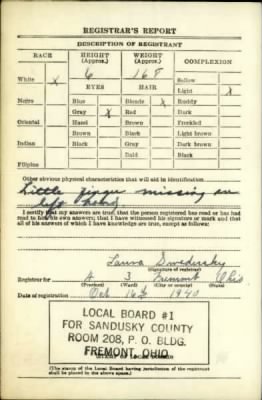 REGISTRAR'S REPORT
DESCRIPTION OF REGISTRANT
RACE HEIGHT (Approx.) WEIGHT (Approx.) COMPLEXION
White x 6 168 Sallow
EYES HAIR Light x
Negro Blue Blonde x Ruddy
Gray x Red Dark
Oriental Hazel Brown Freckled
Brown Black Light brown
Indian Black Gray Dark brown
Bald Black
Filipino
Other obvious physical characteristics that will aid in identification
Little finger missing on
left hand
I certify that my answers are true; that the person registered has read or has had
read to him his own answers; that I have witnessed his signature or mark and that
all of his answers of which I have knowledge are true, except as follows:
Laura
(Signature of registrar)
Registrar for A 3 Fremont Ohio
(Precinct) (Ward) (City or county) (State)
Date of registration Oct 16th 1940
LOCAL BOARD #1
FOR SANDUSKY COUNTY
ROOM 208, P. O. BLDG.
FREMONT, OHIO
(The stamp of the Local Board having jurisdiction of the registrant
shall be placed in the above space.)